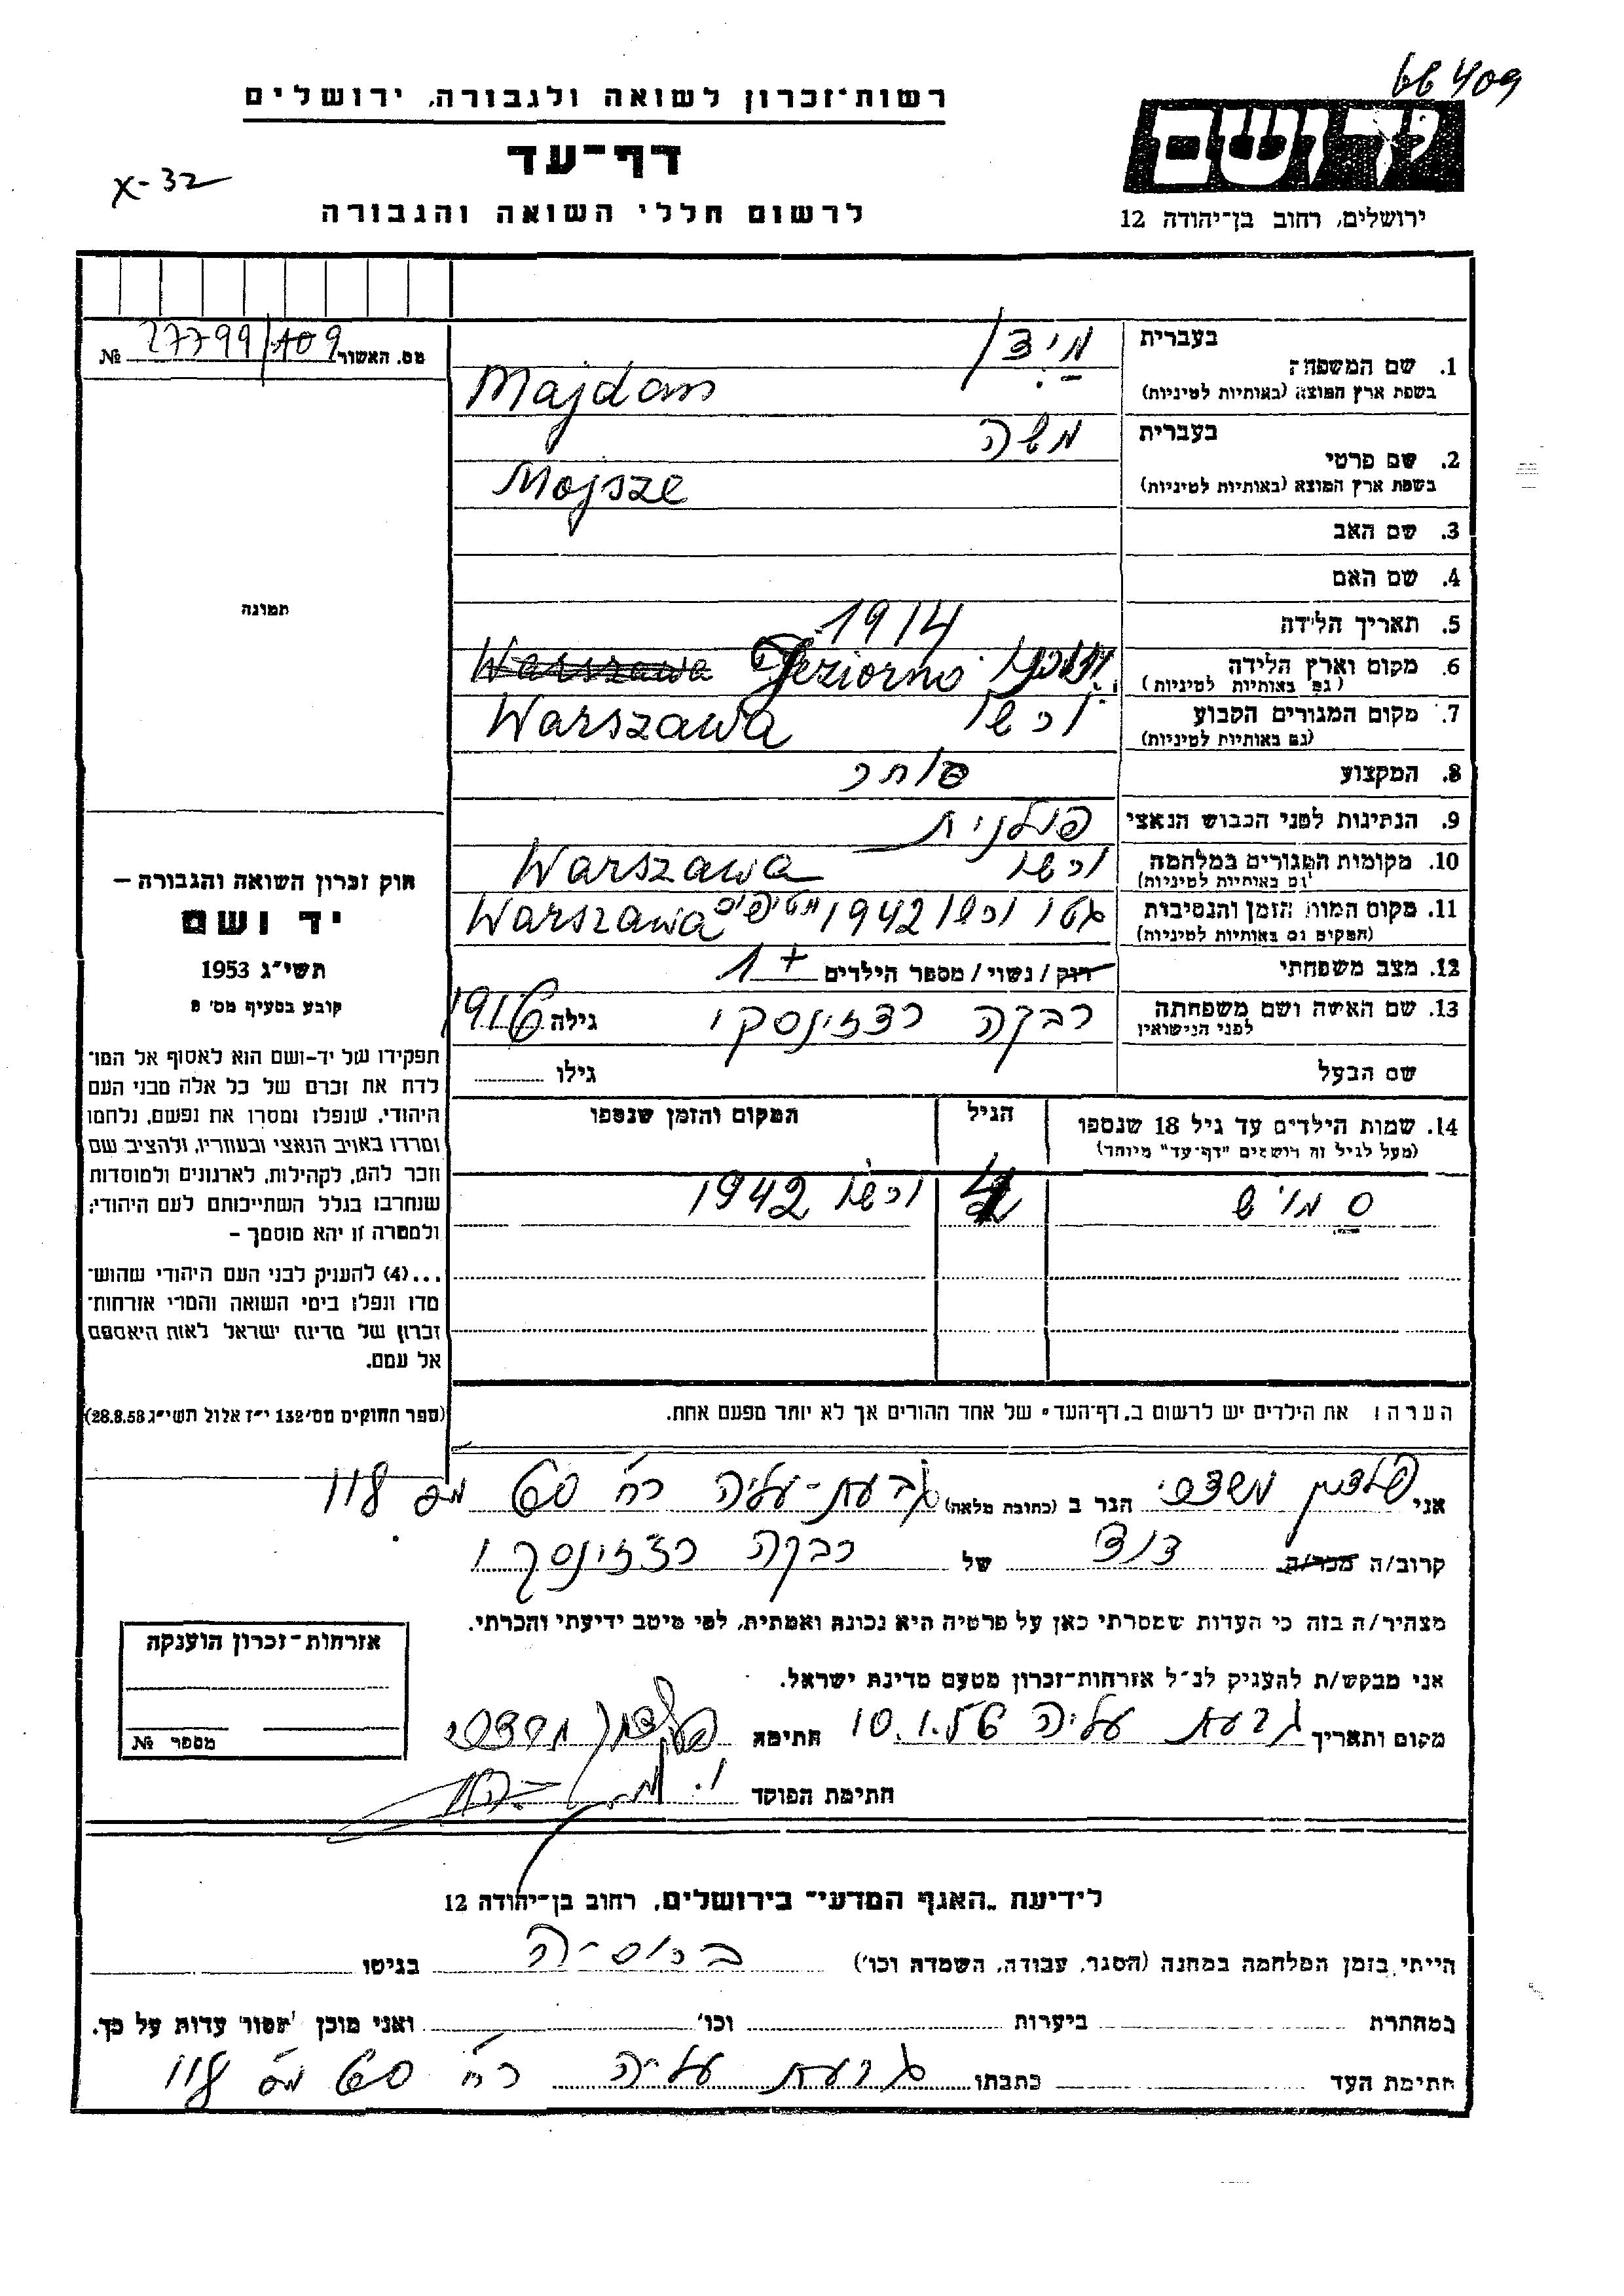 66409
רשות־זכרון לשואה ולגבורה, ירושלים
יד ושם
דף־עד
X-32
לרשום חללי השואה והגבורה
ירושלים, רחוב בן־יהודה 12
מס. האשור 27799/409 №
בעברית
מידן
1. שם המשפחה
בשפת ארץ המוצא (באותיות לטיניות)
Majdan
בעברית
משה
2. שם פרטי
בשפת ארץ המוצא (באותיות לטיניות)
Mojsze
3. שם האב
4. שם האם
תמונה
5. תאריך הלידה 1914
6. מקום וארץ הלידה Jeziorno Warszawa
(גם באותיות לטיניות)
7. מקום המגורים הקבוע ורשו Warszawa
(גם באותיות לטיניות)
8. המקצוע סוחר
9. הנתינות לפני הכבוש הנאצי פולנית
10. מקומות המגורים במלחמה ורשו Warszawa
(גם באותיות לטיניות)
11. מקום המות, הזמן והנסיבות גטו ורשו 1942 Warszawa
(המקום גם באותיות לטיניות)
12. מצב משפחתי רוק / נשוי / מספר הילדים 1 +
13. שם האשה ושם משפחתה לפני הנישואין רבקה רצזינסקי גילה 1916
שם הבעל גילו
14. שמות הילדים עד גיל 18 שנספו הגיל המקום והזמן שנספו
(מעל לגיל זה רושמים "דף־עד" מיוחד)
4 ורשו 1942
הערה: את הילדים יש לרשום ב„דף־העד" של אחד ההורים אך לא יותר מפעם אחת.
חוק זכרון השואה והגבורה –
יד ושם
תשי"ג 1953
קובע בסעיף מס' 2
תפקידו של יד־ושם הוא לאסוף אל המו־
לדת את זכרם של כל אלה מבני העם
היהודי, שנפלו ומסרו את נפשם, נלחמו
ומרדו באויב הנאצי ובעוזריו, ולהציב שם
וזכר להם, לקהילות, לארגונים ולמוסדות
שנחרבו בגלל השתייכותם לעם היהודי;
ולמטרה זו יהא מוסמך –
...(4) להעניק לבני העם היהודי שהוש־
מדו ונפלו בימי השואה והמרי אזרחות־
זכרון של מדינת ישראל לאות היאספם
אל עמם.
(ספר החוקים מס' 132 י"ז אלול תשי"ג 28.8.53)
אני הגר ב (כתובת מלאה) גבעת-עליה רח' 60 מס 118
קרוב/ה מכר/ה דוד של רבקה רצזינסקי
מצהיר/ה בזה כי העדות שמסרתי כאן על פרטיה היא נכונה ואמתית, לפי מיטב ידיעתי והכרתי.
אני מבקש/ת להעניק לנ"ל אזרחות־זכרון מטעם מדינת ישראל.
מקום ותאריך גבעת עליה 10.1.56 חתימה
חתימת הפוקד
אזרחות־זכרון הוענקה
מספר №
לידיעת „האגף המדעי" בירושלים, רחוב בן־יהודה 12
הייתי בזמן המלחמה במחנה (הסגר, עבודה, השמדה וכו') ברוסיה בגיטו
במחתרת ביערות וכו' ואני מוכן למסור עדות על כך.
חתימת העד כתבתו גבעת עליה רח' 60 מס' 118